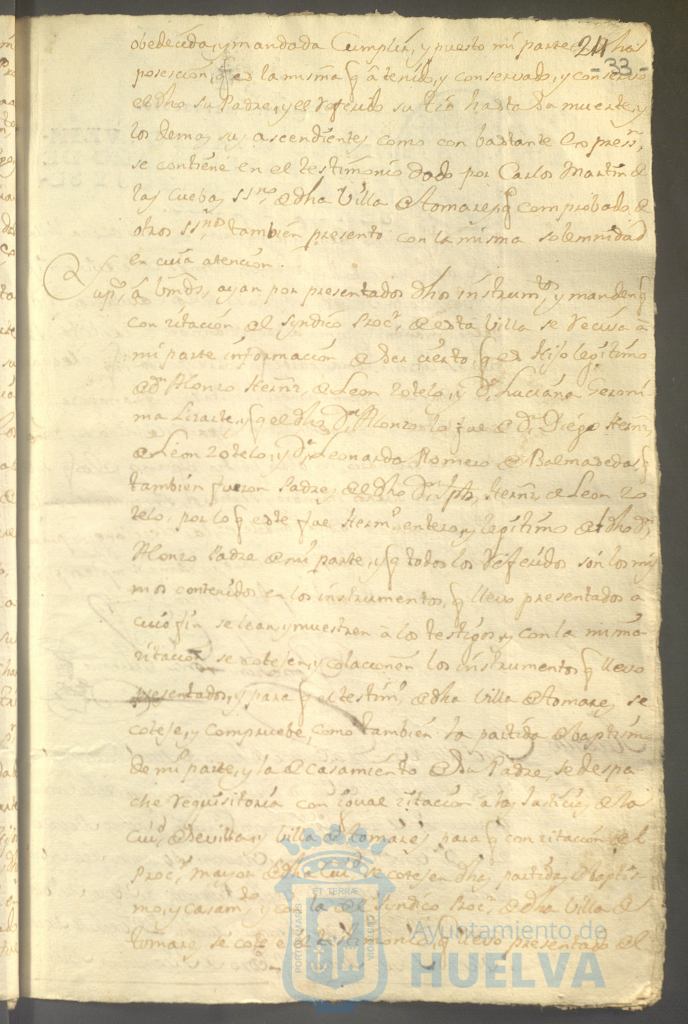 24
-33-
obedecida, y mandada Cumplir, y puesto mi parte en dha
posesion, q es la misma q à tenido, y conservado, y conservo
el dho su Padre, y el referido su tio hasta su muerte, y
los demas sus ascendientes como con bastante Expresn,
se contiene en el testimonio dado por Carlos Martin de
las Cuebas ssno, de dha Villa de tomares, q comprobado, de
otros ssnos tambien presento con la misma solemnidad
en cuia atencion.
Supco, à Vmds, ayan por presentados dhos instrumtos, y manden q
con citación del Syndico Procr, de esta Villa se reciva à
mi parte información de ser cierto, q es Hijo legitimo
de Dn Alonzo Hernz, de Leon Sotelo, y Da, Luciana Geroni
ma Lizarte, y q el dho Dn Alonzo lo fue de Dn Diego Hernz
de Leon Sotelo, y Da, Leonarda Romero de Balmaseda, q
tambien fueron Padres del dho Dn Jph, Hernz de Leon So
telo, por lo q este fue Hermo, entero, y legitimo del dho Dn
Alonzo Padre de mi parte, y q todos los referidos son los mis
mos contenidos en los instrumentos, q llevo presentados à
cuio fin se lean, y muestren à los testigos, y con la misma
citacion se cotejen, y colacionen los instrumentos q llevo
presentados, y para q el testimo, de dha Villa de tomares, se
coteje, y Compruebe, como tambien la partida de baptism
de mi parte, y la del Casamiento de su Padre, se despa
che requisitoria con igual citación a las Justicias de la
Ciud, de Sevilla, y Villa de tomares para q con citación del
Procr, mayor de dha Ciud, se cotejen dhas partidas de baptis
mo, y casamto, y con la del Syndico Procr, de dha Villa de
tomares, se coteje el testimonio, q llevo presentado el
ET TERRÆ
PORTUS MARIS
CUSTODIA
Ayuntamiento de
HUELVA